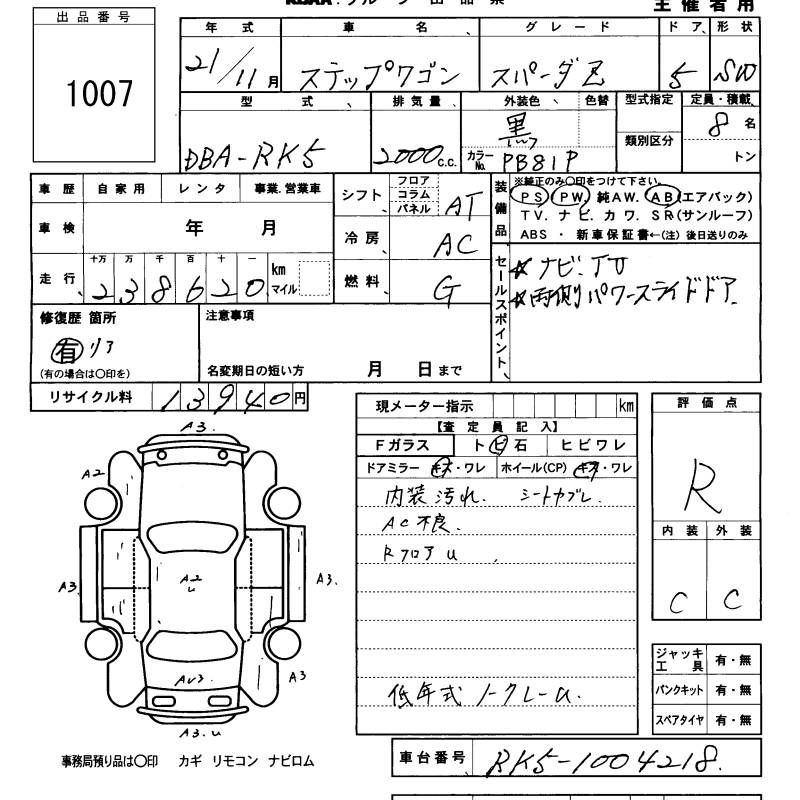 主催者用
出品番号
1007
年式 車名 グレード ドア 形状
21/11月 ステップワゴン スパーダZ 5 SW
型式 排気量 外装色 色替 型式指定 定員・積載
DBA-RK5 2000c.c. 黒 カラーNo. PB81P 類別区分 8名 トン
車歴 自家用 レンタ 事業.営業車
車検 年 月
走行 十万 万 千 百 十 一
238620 km マイル
シフト フロア コラム パネル AT
冷房 AC
燃料 G
装備品
※純正のみ○印をつけて下さい。
PS. PW. 純AW. AB(エアバック)
TV. ナビ. カワ. SR(サンルーフ)
ABS ・ 新車保証書←(注)後日送りのみ
セールスポイント
☆ナビ.TV
☆両側パワースライドドア
修復歴 箇所
有 リア
(有の場合は○印を)
注意事項
名変期日の短い方 月 日まで
リサイクル料 13940円
現メーター指示 km
【査定員記入】
Fガラス ト ビ 石 ヒビワレ
ドアミラー キズ・ワレ ホイール(CP) キズ・ワレ
内装汚れ. シートカブレ.
AC不良.
RフロアU
低年式 ノークレーム.
評価点
R
内装 外装
C C
ジャッキ工具 有・無
パンクキット 有・無
スペアタイヤ 有・無
A3.
A2
A3. A2 U A3.
AU3. A3
A3.U
事務局預り品は○印 カギ リモコン ナビロム
車台番号 RK5-1004218.